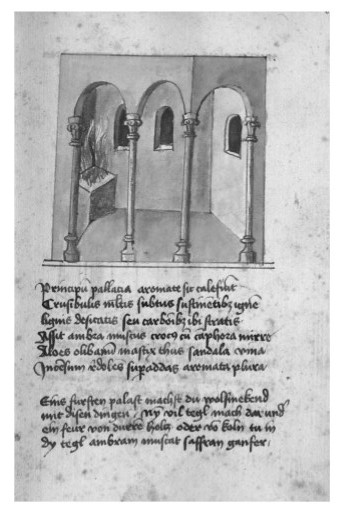 Principū pallacia aromate sic calefiāt
Crusibulis mltis subtus sustinetibꝫ ignē
lignis desicatis seu carbōibꝫ ibi stratis
Assit ambra muscus crocꝰ cū caphora mirre
Aloes olibanū mastix thus sandala roma
Incēsum r̄doles suꝑaddas aromata plura
Eins fursten palast machst du wolsmekend
mit disen dingen / wy vil tegl mach dar und
ein feur von durre holtz oder vō koln tu in
dy tegl ambram muscat saffran ganfer /